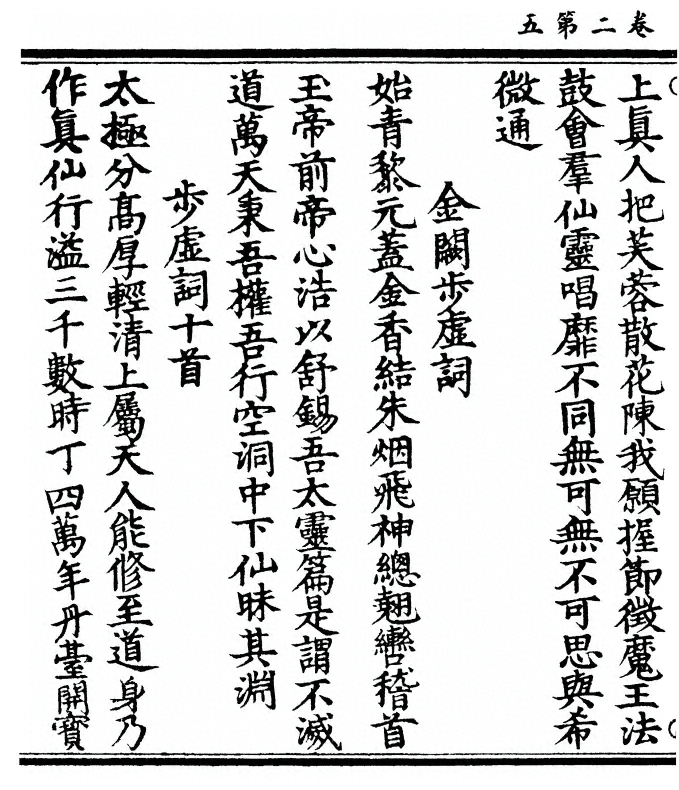 卷二第五
上眞人把芙蓉散花陳我願握節徵魔王法
鼓會羣仙靈唱靡不同無可無不可思與希
微通
金闕步虛詞
始青黎元蓋金香結朱烟飛神總翹轡稽首
玉帝前帝心浩以舒錫吾太靈篇是謂不滅
道萬天秉吾權吾行空洞中下仙昧其淵
步虛詞十首
太極分高厚輕清上屬天人能修至道身乃
作眞仙行溢三千數時丁四萬年丹臺開寶